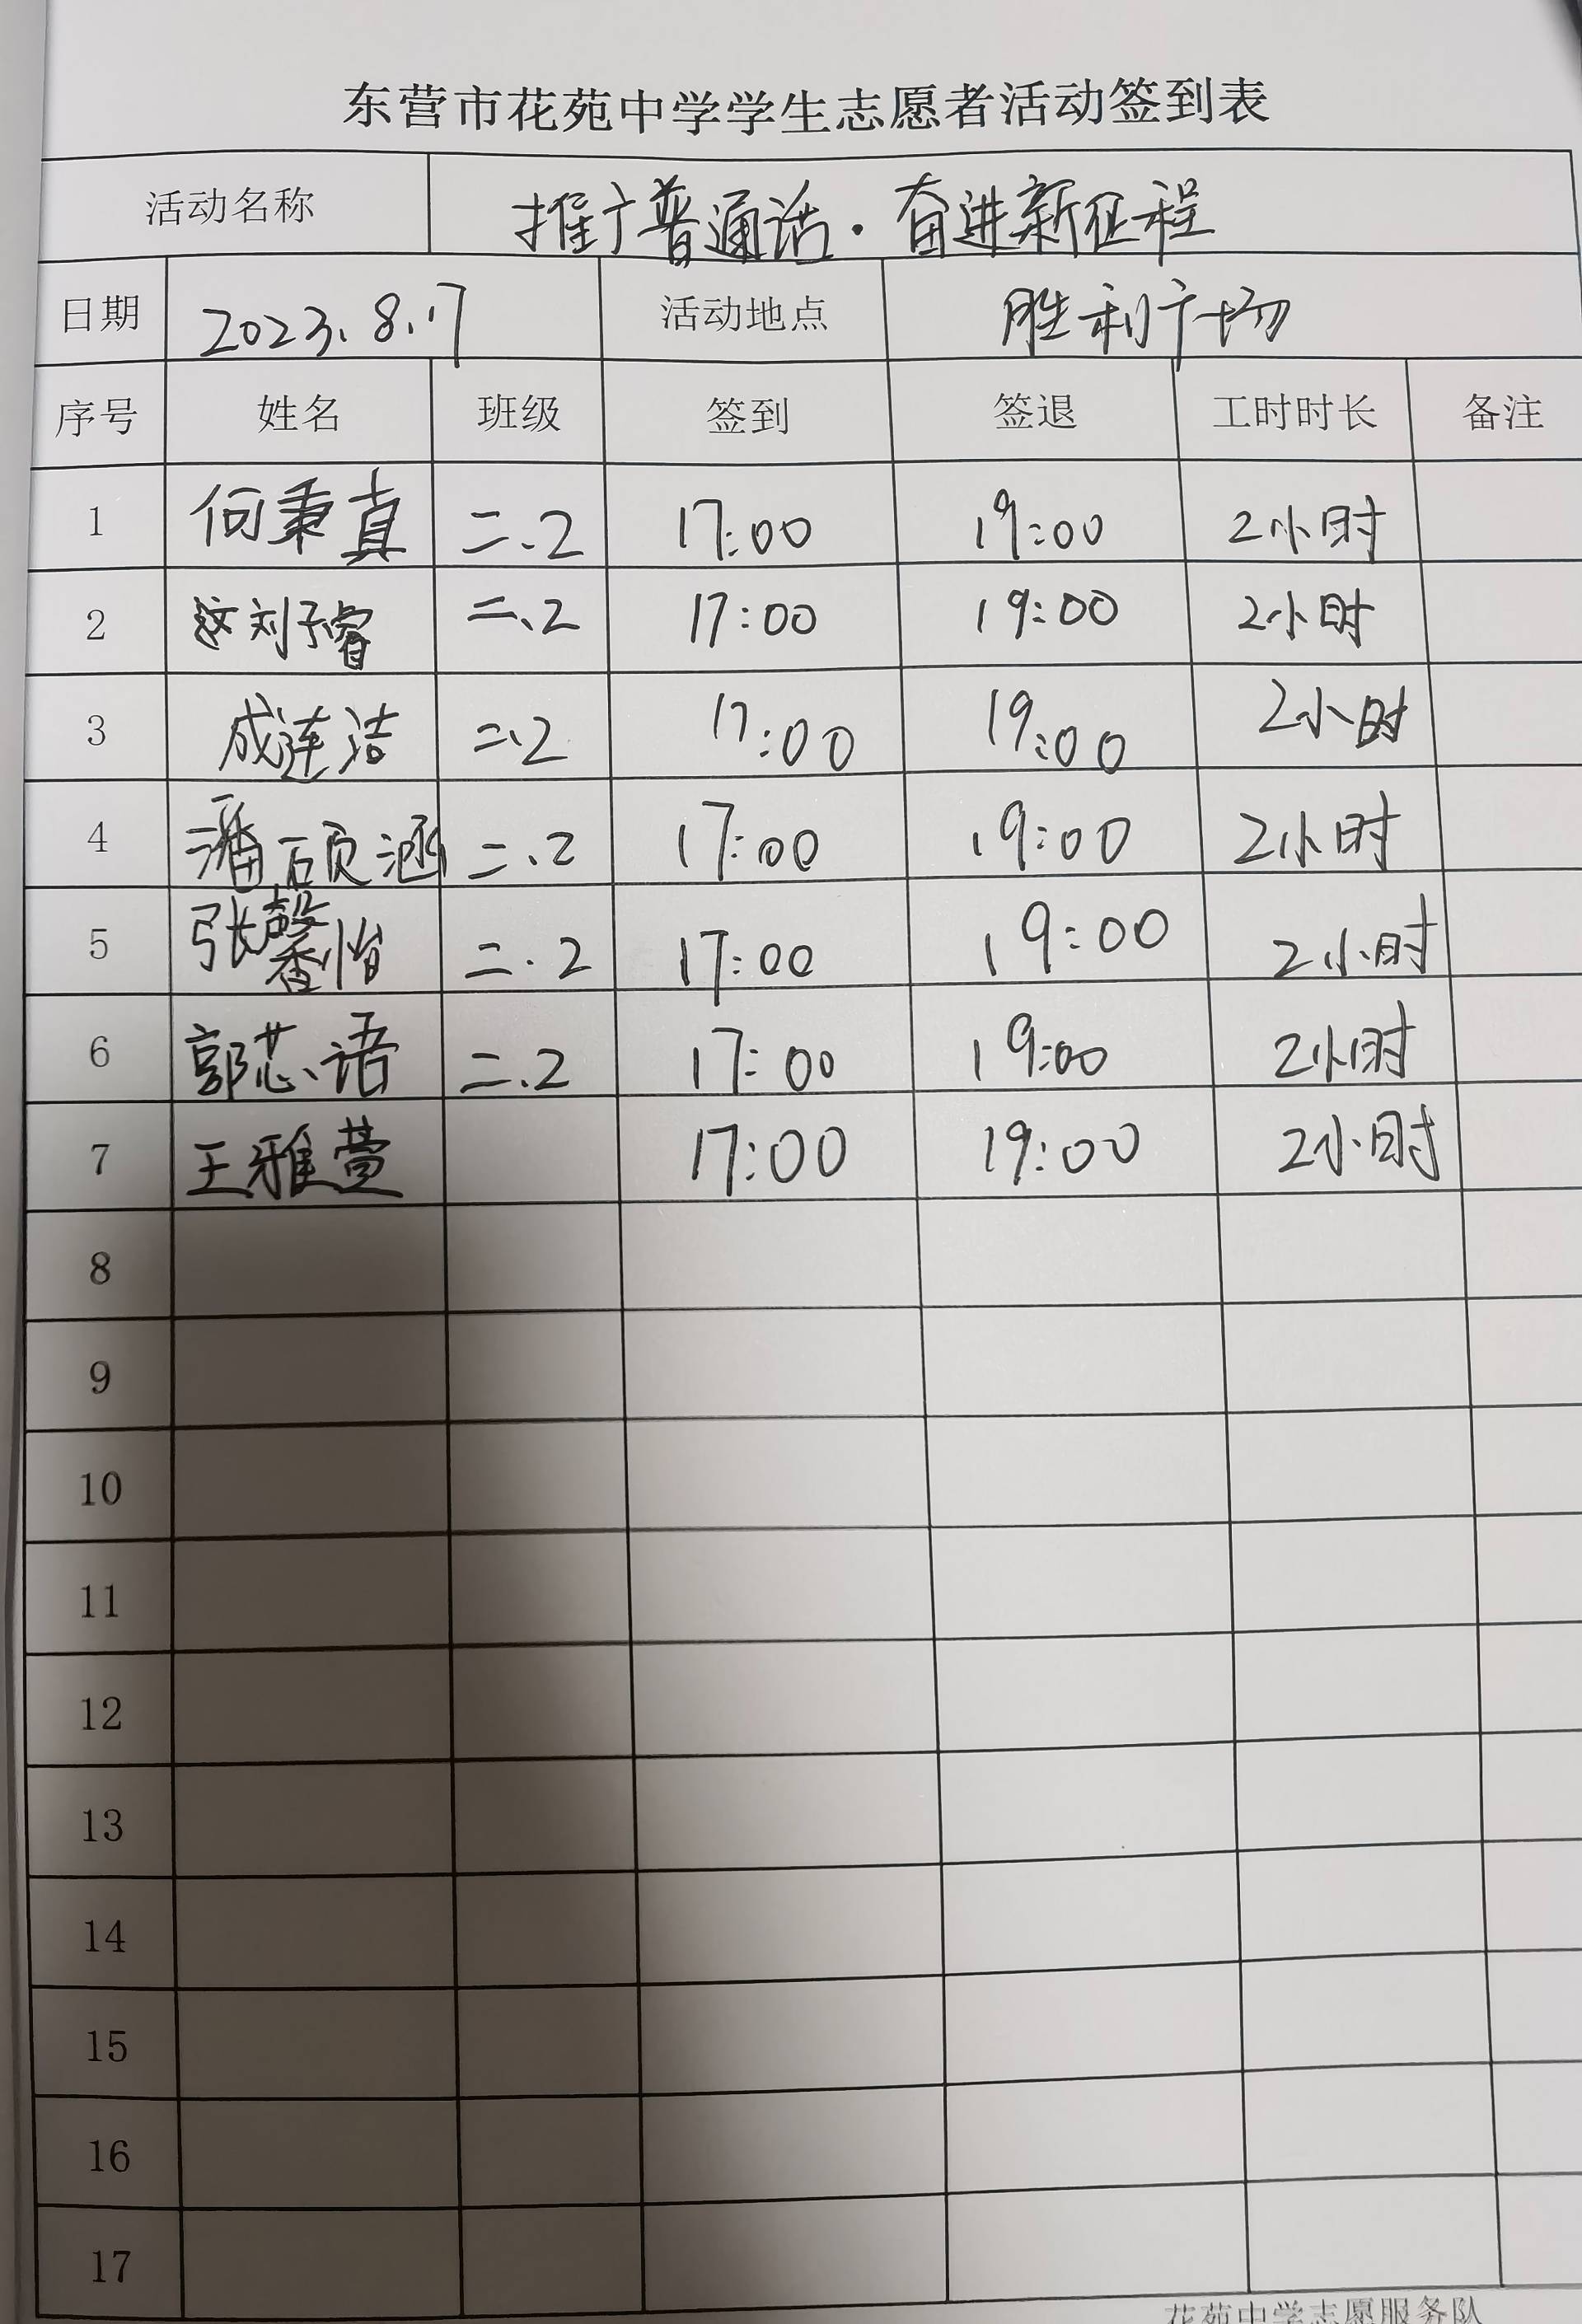 东营市花苑中学学生志愿者活动签到表
活动名称 推广普通话·奋进新征程
日期 2023.8.17 活动地点 胜利广场
序号 姓名 班级 签到 签退 工时时长 备注
1 何秉真 二.2 17:00 19:00 2小时
2 刘子睿 二.2 17:00 19:00 2小时
3 成连洁 二.2 17:00 19:00 2小时
4 潘硕涵 二.2 17:00 19:00 2小时
5 张馨怡 二.2 17:00 19:00 2小时
6 郭芯语 二.2 17:00 19:00 2小时
7 王雅萱 17:00 19:00 2小时
8
9
10
11
12
13
14
15
16
17
花苑中学志愿服务队